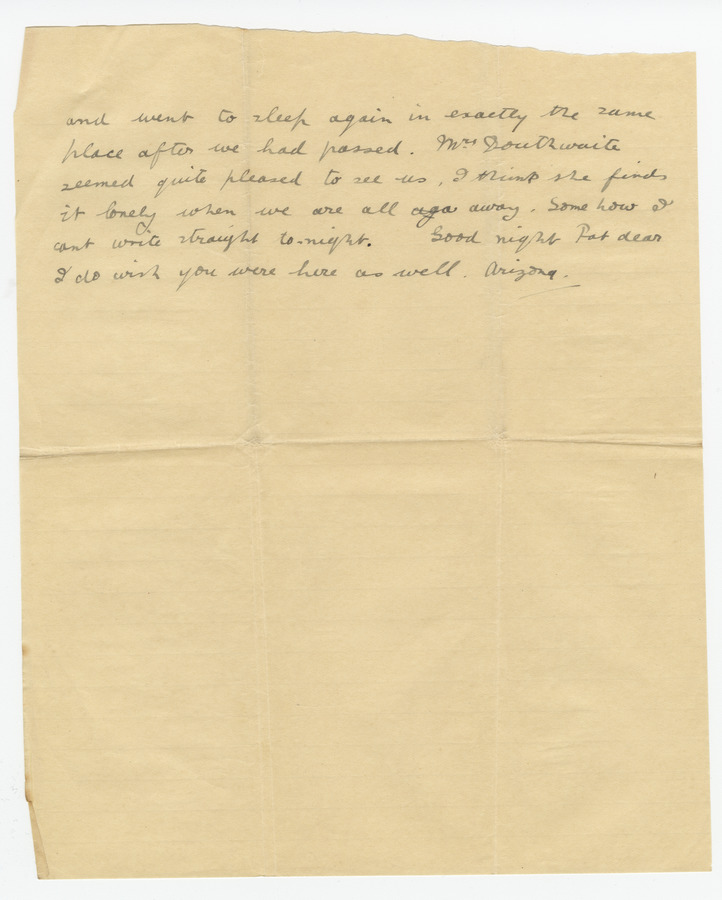 and went to sleep again in exactly the same
place after we had passed. Mrs Douthwaite
seemed quite pleased to see us, I think she finds
it lonely when we are all aga away. Some how I
cant write straight to-night. Good night Pat dear
I do wish you were here as well. Arizona.